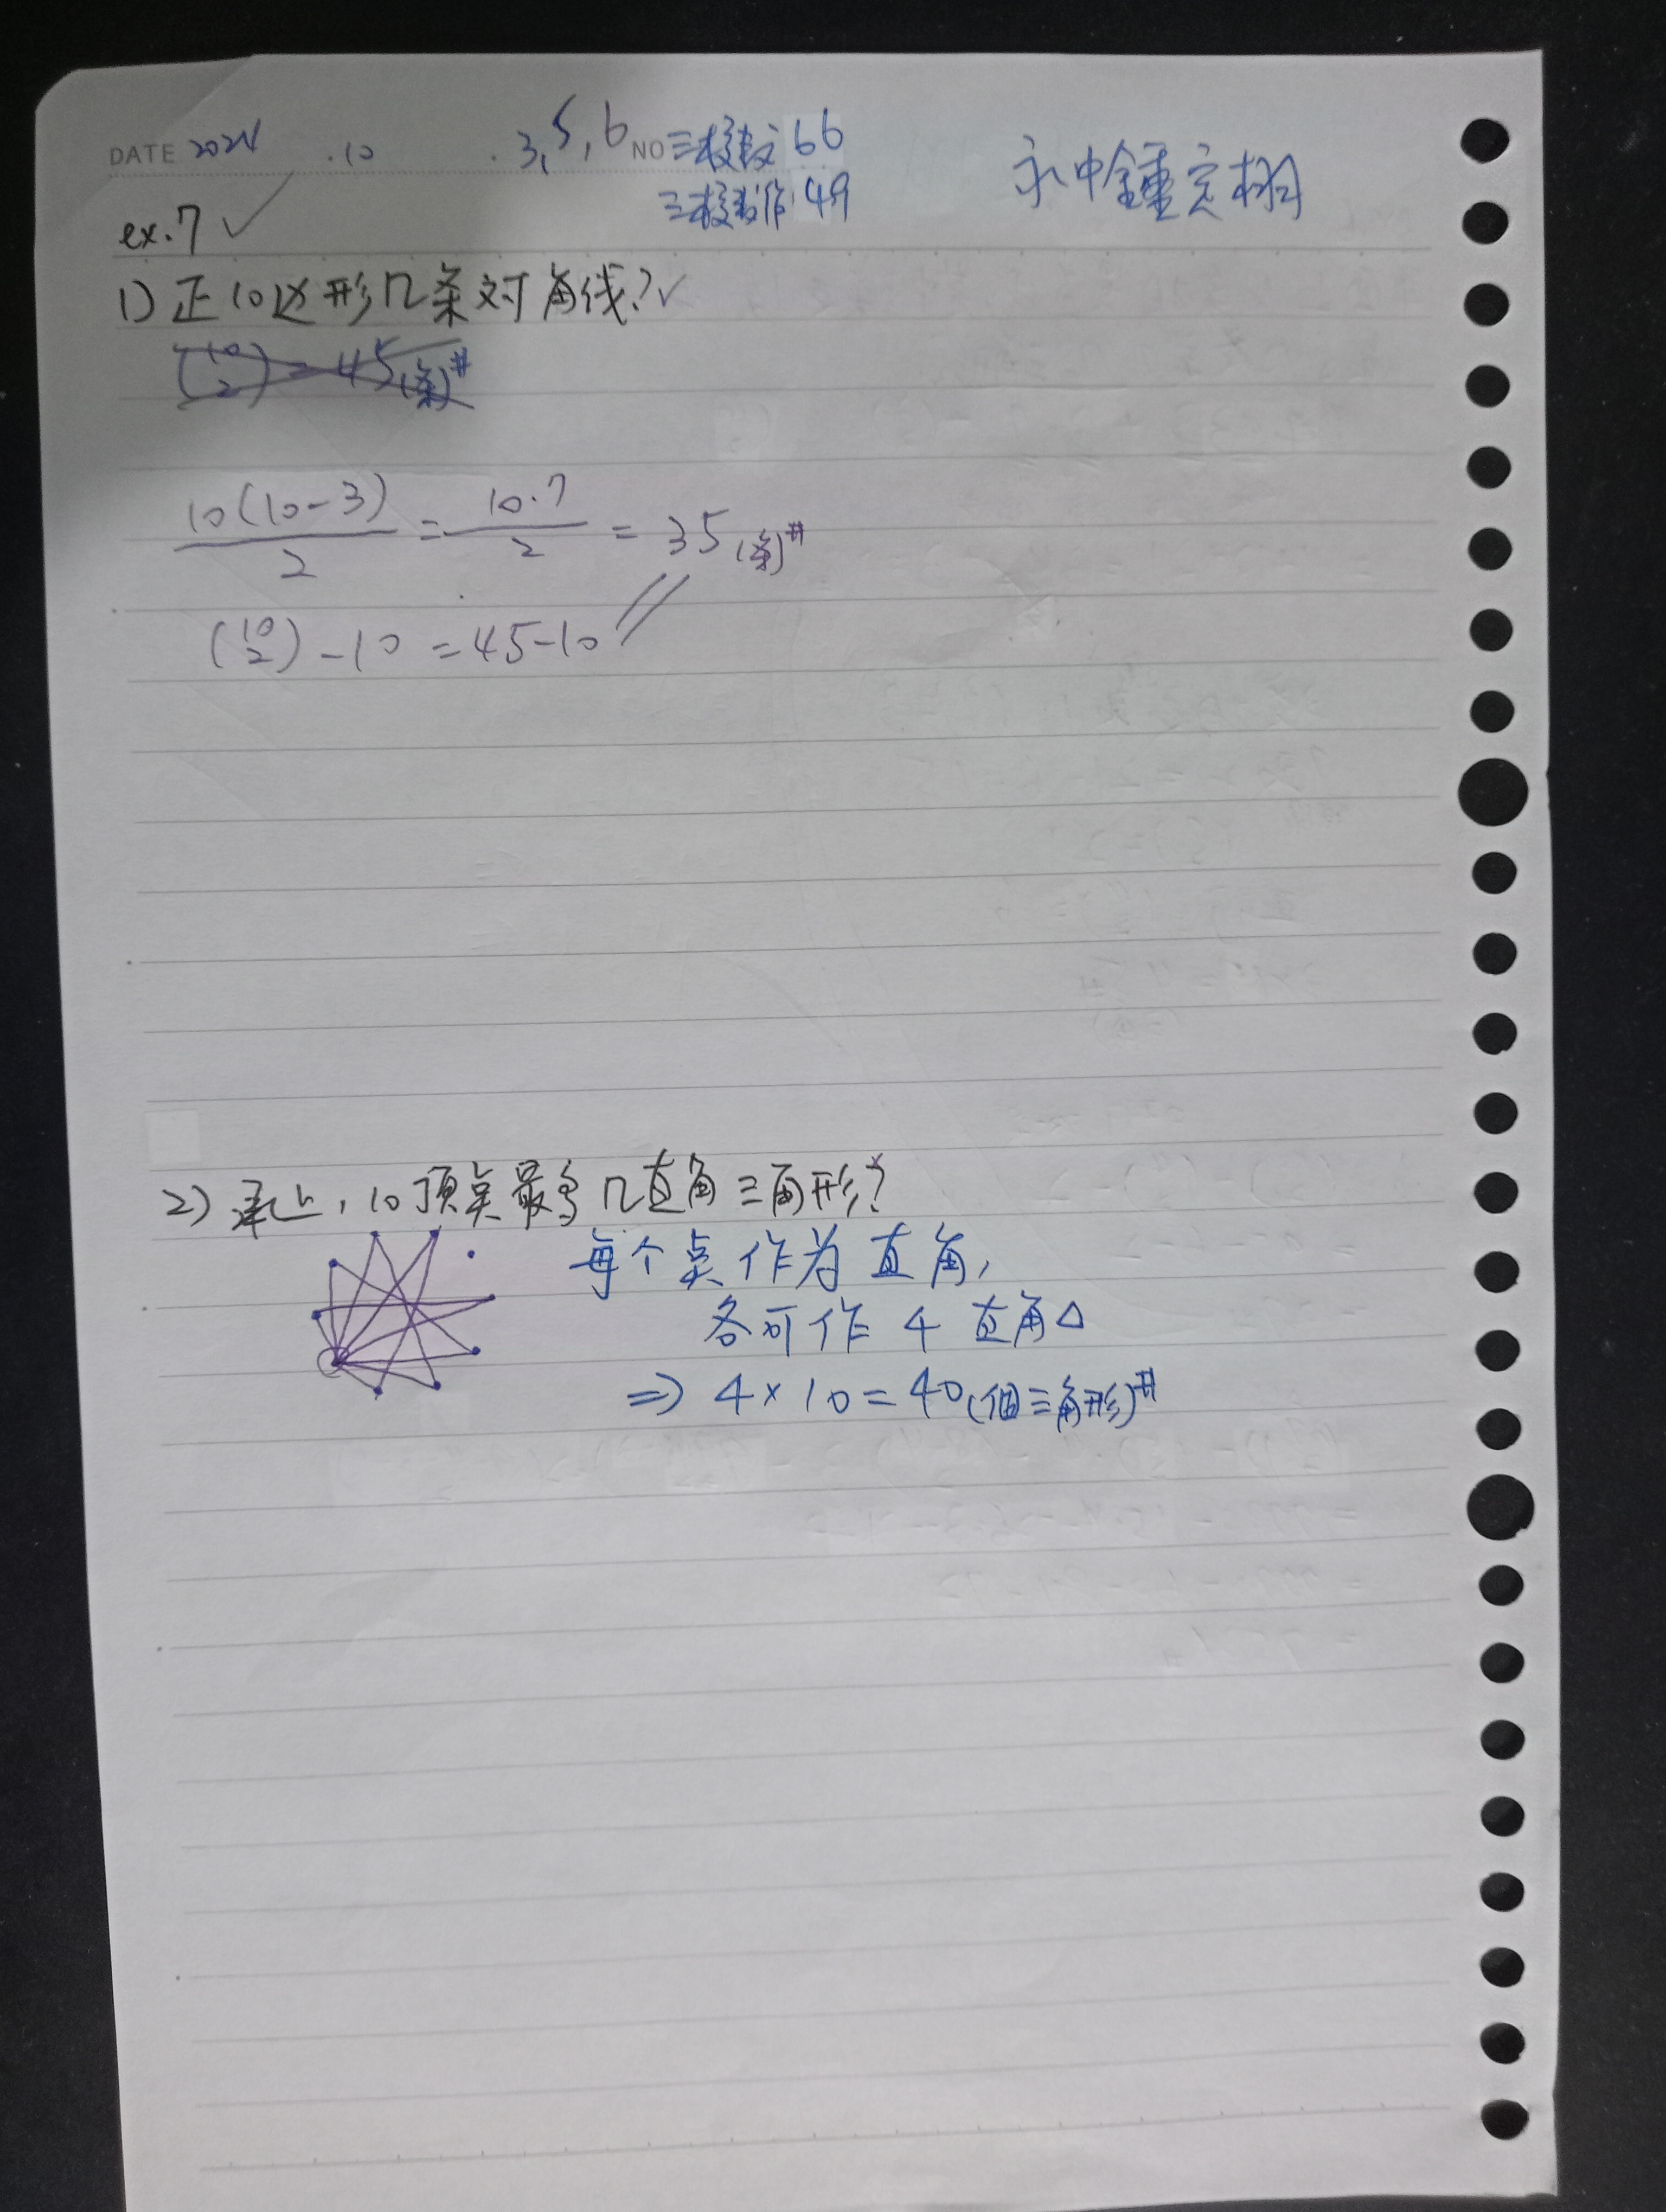 DATE 2024 .10 .3,5,6 NO 三校文 66
三校 作 49
永中鍾
ex.7 ✓
1) 正10边形几条对角线?✓
(10 2) = 45(条)#
10(10-3) / 2 = 10·7 / 2 = 35(条)#
(10 2) - 10 = 45-10 //
2) 承上,10顶点最多几直角三角形?
每个点作为直角,
各可作 4 直角△
⇒ 4 × 10 = 40(個三角形)#